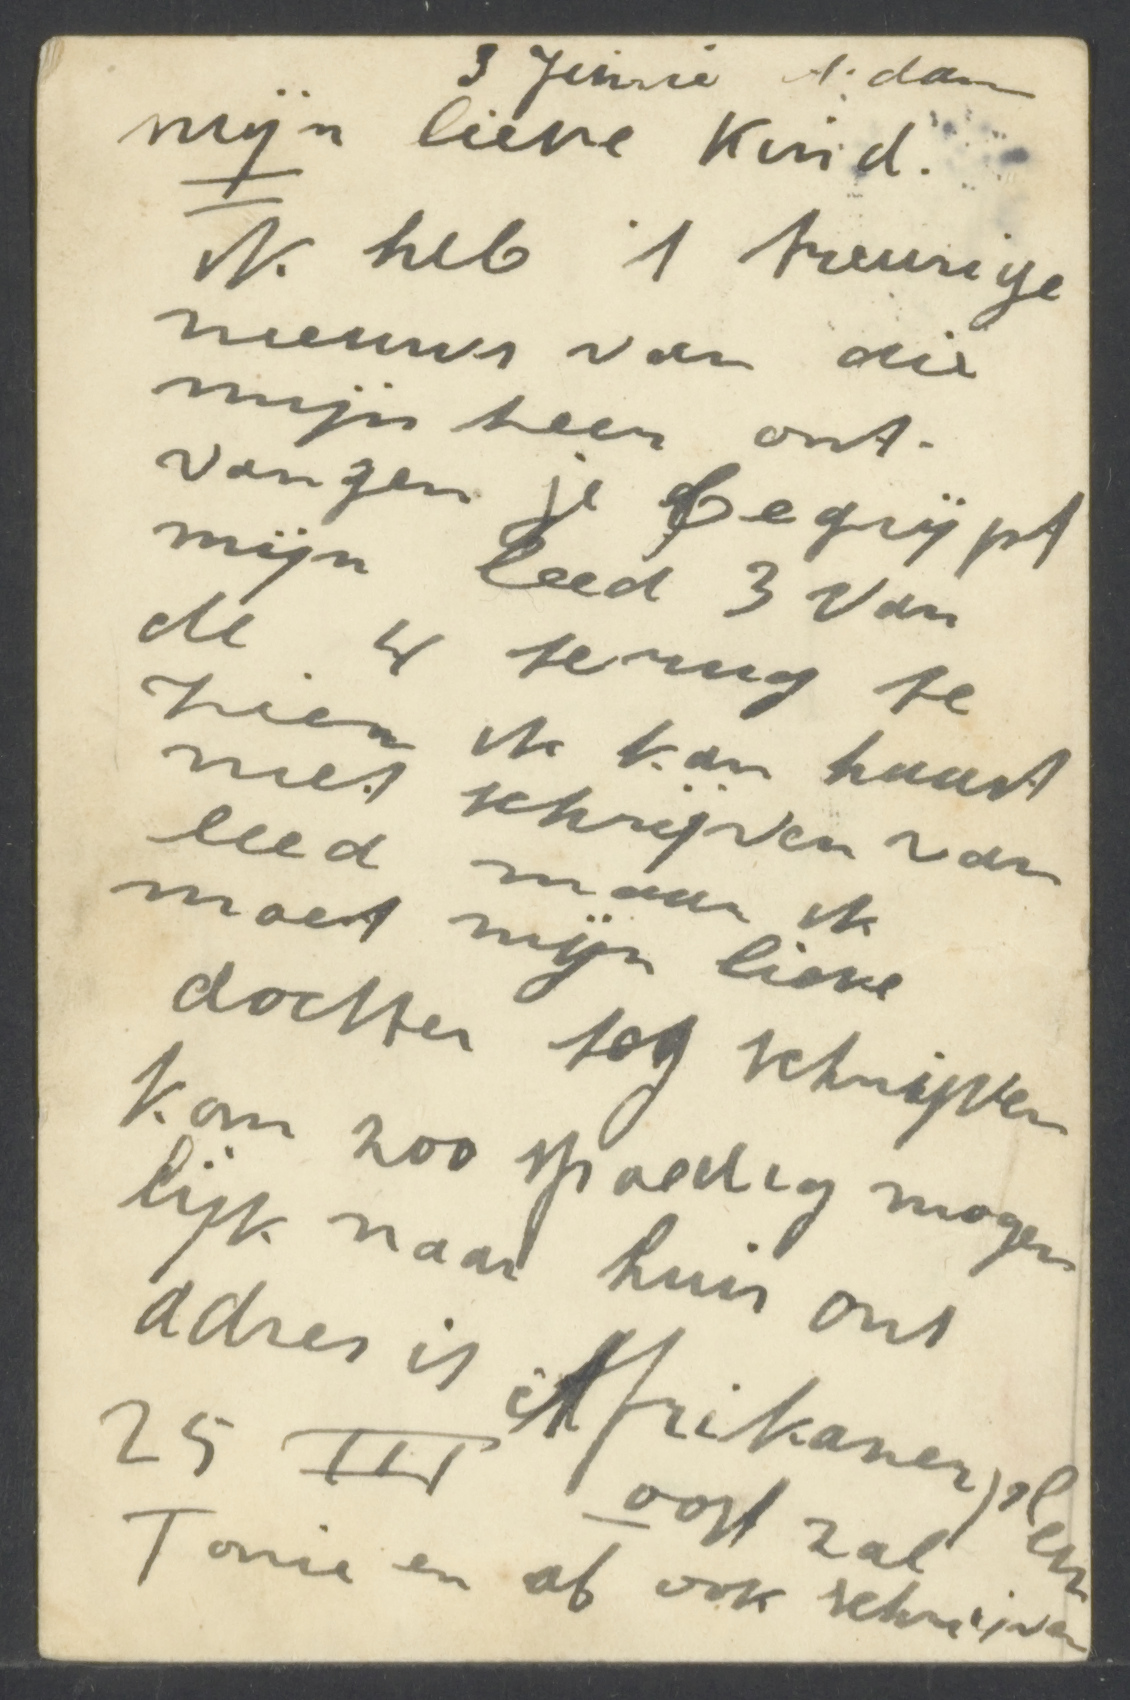 3 Junie A.dam
mijn lieve Kind.
ik heb 't treurige
nieuws van die
mijnheer ont-
vangen je begrijpt
mijn leed 3 van
de 4 terug te
zien ik kan haast
niet schrijven van
leed maar ik
moet mijn lieve
dochter tog schrijven
Kom zoo spoedig mogen
lijk naar huis ons
adres is Afrikanerplein
25 III oost zal
Tonie en ab ook schrijven